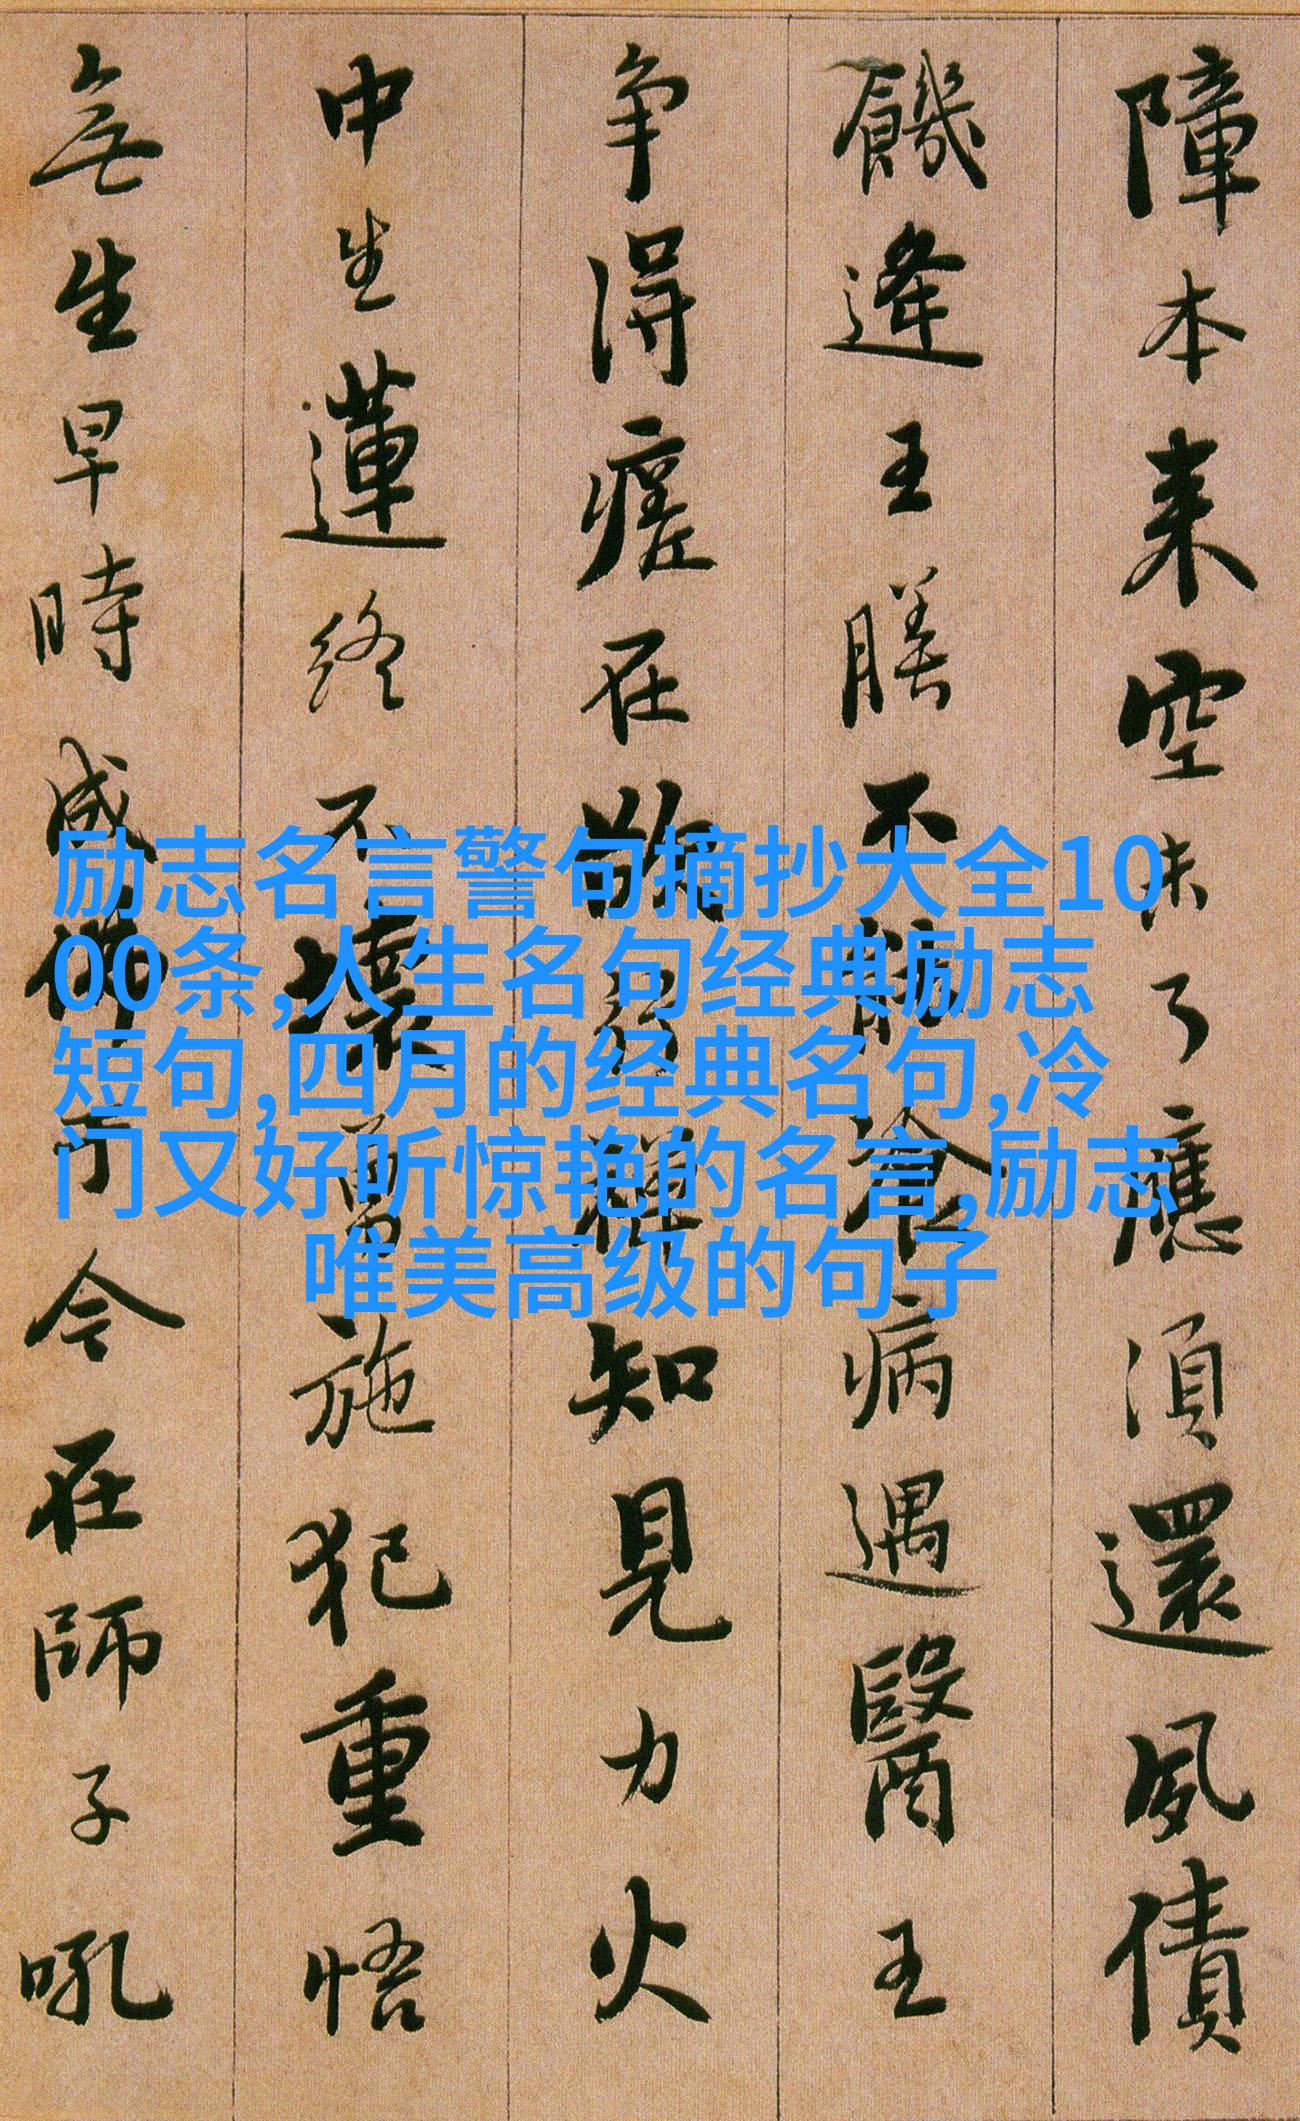 障本来空未了應須還夙債
饑逢王膳不能飡病遇醫王
争得瘥在欲行禪知見力火
中生蓮終不壞勇施犯重悟
無生早時成佛于今在師子吼
励志名言警句摘抄大全10
00条,人生名句经典励志
短句,四月的经典名句,冷
门又好听惊艳的名言,励志
唯美高级的句子